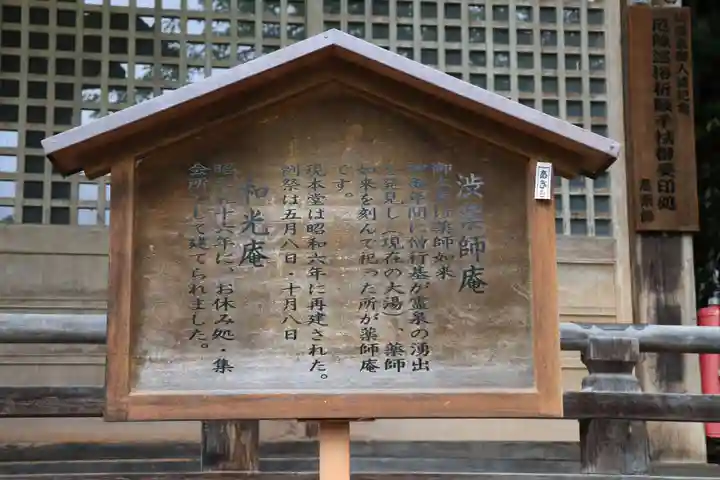 渋薬師庵
御本尊は薬師如来
年間に僧行基が霊泉の湧出
を発見し（現在の大湯）、薬師
如来を刻んで祀った所が薬師庵
です。
現本堂は昭和六年に再建された。
例祭は五月八日・十月八日
和光庵
昭和五十六年に、お休み処・集
会所として建てられました。
厄除巡浴祈願手拭御朱印処